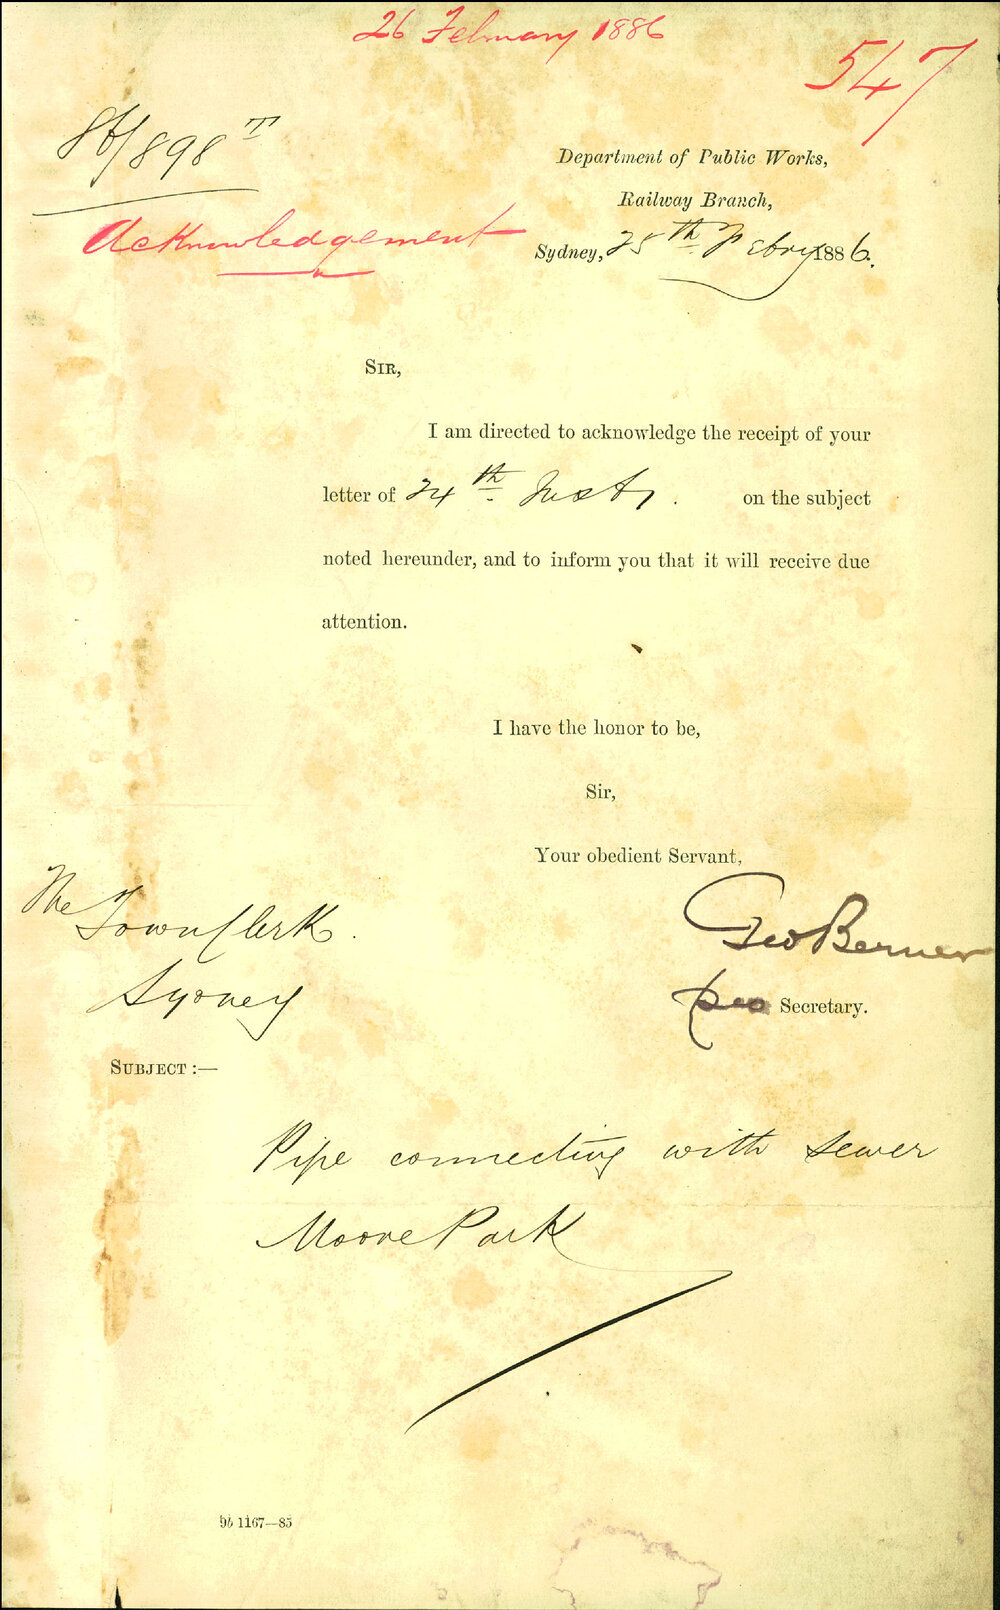 26 February 1886
547
86/898 T
Acknowledgement
Department of Public Works,
Railway Branch,
Sydney, 25th Febry 1886.
SIR,
I am directed to acknowledge the receipt of your
letter of 24th Inst. on the subject
noted hereunder, and to inform you that it will receive due
attention.
I have the honor to be,
Sir,
Your obedient Servant,
Geo Berner
pro Secretary.
The
Town Clerk.
Sydney
SUBJECT :—
Pipe connecting with sewer
Moore Park
9b 1167—85